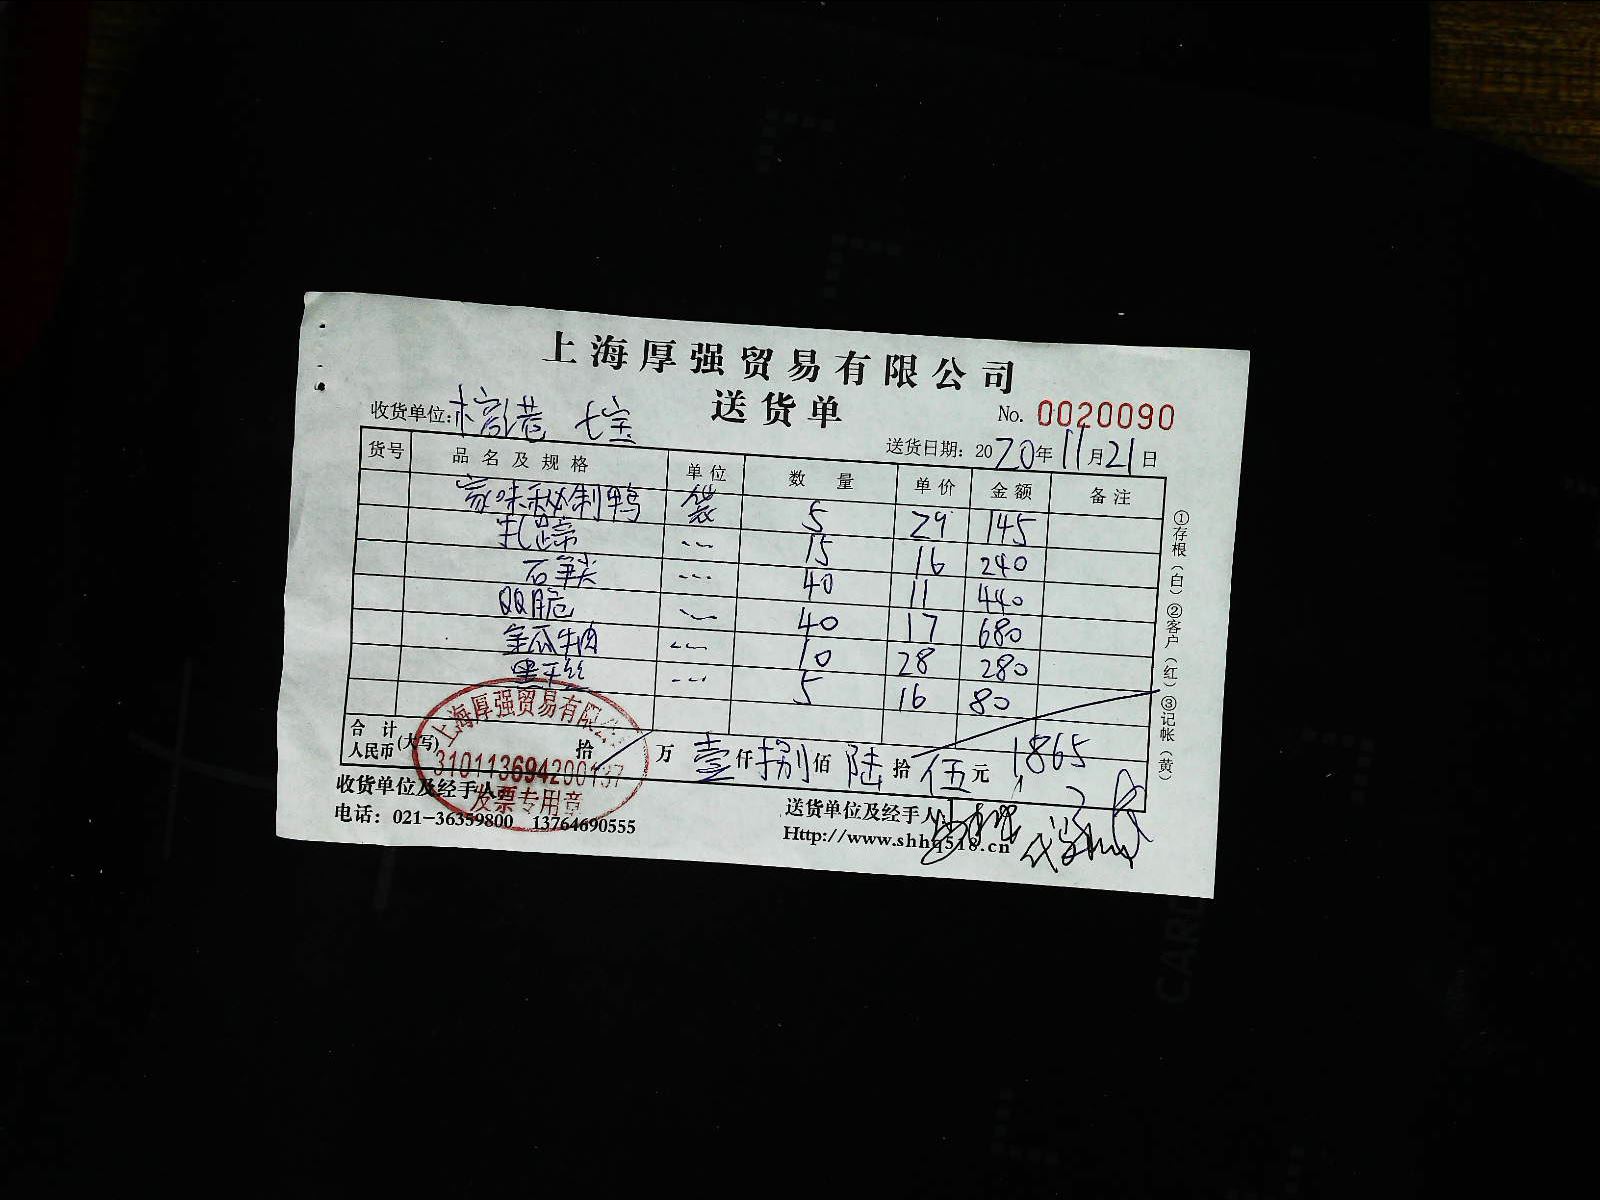 上海厚强贸易有限公司
送货单
No. 0020090
收货单位: 七宝
送货日期: 2020年11月21日
货号 品名及规格 单位 数量 单价 金额 备注
家味秘制鸭 袋 5 29 145
扎蹄 15 16 240
石笋尖 40 11 440
QQ脆 40 17 680
金瓜牛肉 10 28 280
黑干丝 5 16 80
合计人民币(大写) 拾 万 壹仟捌佰陆拾伍元 1865
上海厚强贸易有限公司
310113694200137
发票专用章
收货单位及经手人
送货单位及经手人
电话：021-36359800 13764690555
Http://www.shhq518.cn
①存根（白）②客户（红）③记帐（黄）